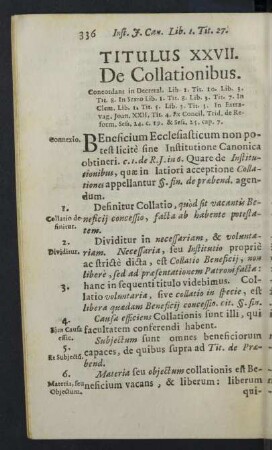 336 Inst. J. Can. Lib. 1. Tit. 27.
TITULUS XXVII.
De Collationibus.
Concordans in Decretal. Lib. 1. Tit. 10. Lib. 3.
Tit. 8. In Sexto Lib. 1. Tit. 8. Lib. 3. Tit. 7. In
Clem. Lib. 1. Tit. 5. Lib. 3. Tit. 3. In Extra-
vag. Joan. XXII. Tit. 4. Ex Concil. Trid. de Re-
form. Sess. 24. c. 19. & Sess. 25. cap. 7.
Connexio.
BEneficium Ecclesiasticum non po-
test licitè sine Institutione Canonica
obtineri. c. 1. de R. J. in 6. Quare de Institu-
tionibus, quæ in latiori acceptione Colla-
tiones appellantur §. fin. de præbend. agen-
dum.
1.
Collatio de-
finitur.
Definitur Collatio, quòd sit vacantis Be-
neficij concessio, facta ab habente potesta-
tem.
2.
Dividitur.
Dividitur in necessariam, & volunta-
riam. Necessaria, seu Institutio propriè
ac strictè dicta, est Collatio Beneficij, non
liberè, sed ad præsentationem Patroni facta:
3.
hanc in sequenti titulo videbimus. Col-
latio voluntaria, sive collatio in specie, est
libera quædam Beneficij concessio. cit. §. fin.
4.
Ejus Causa
effic.
Causa efficiens Collationis sunt illi, qui
facultatem conferendi habent.
5.
Et Subjectū.
Subjectum sunt omnes beneficiorum
capaces, de quibus supra ad Tit. de Præ-
bend.
6.
Materia, seu
Objectum.
Materia seu objectum collationis est Be-
neficium vacans, & liberum: liberum
qui-